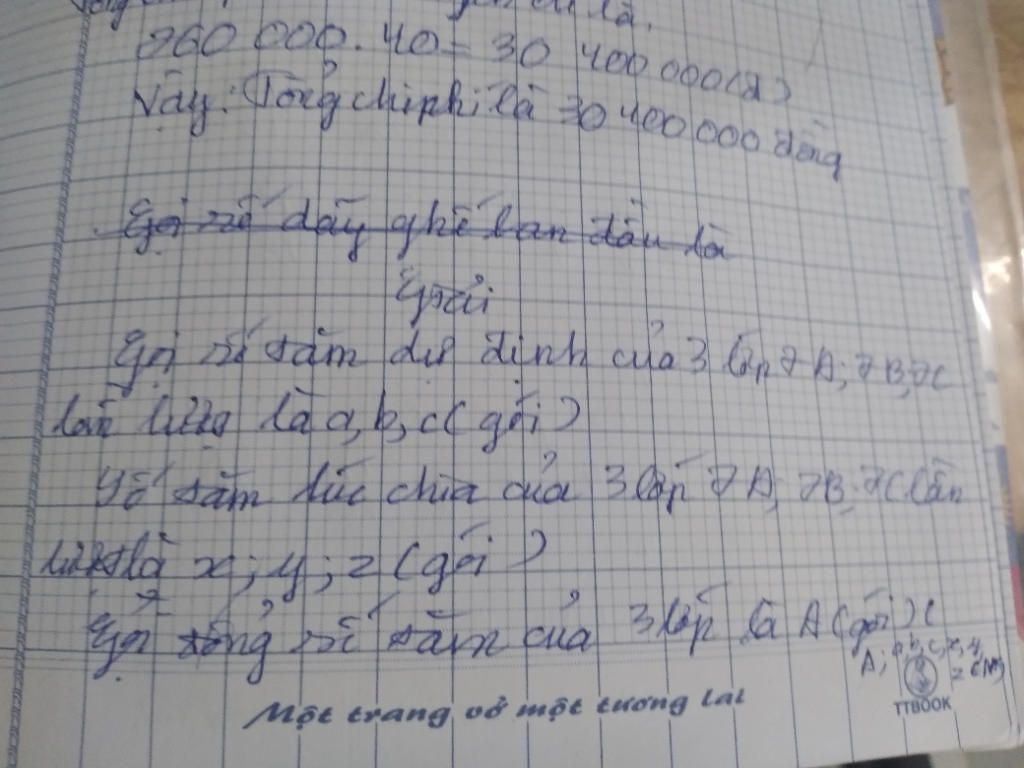 là.
760 000. 40 = 30 400 000(đ)
Vậy: Tổng chi phí là 30 400 000 đồng
Gọi số dãy ghế ban đầu là
Giải
Gọi số tăm dự định của 3 lớp 7A; 7B; 7C
lần lượt là a, b, c( gói )
Số tăm lúc chia của 3 lớp 7A; 7B; 7C lần
lượt là x; y; z ( gói )
Gọi tổng số tăm của 3 lớp là A (gói) (
A; a, b, c, x, y,
z
Một trang vở một tương lai
TTBOOK